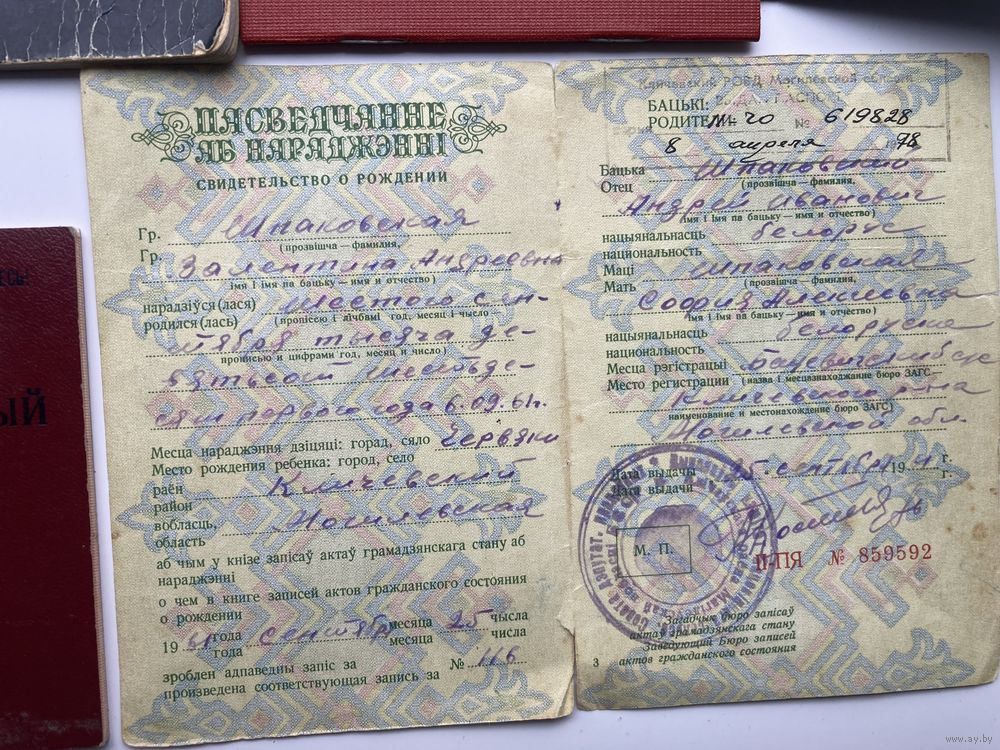 ПАСВЕДЧАННЕ
АБ НАРАДЖЭННІ
СВИДЕТЕЛЬСТВО О РОЖДЕНИИ
Гр. Шпаковская
(прозвішча — фамилия,
Гр. Валентина Андреевна
імя і імя па бацьку — имя и отчество)
нарадзіўся (лася) шестого сен-
родился(лась) (прописью і лічбамі год, месяц і число
тября тысяча де-
прописью и цифрами год, месяц и число)
вятьсот шестьде-
сят первого года 6.09.61 г.
Месца нараджэння дзіцяці: горад, сяло Червяки
Место рождения ребенка: город, село
раён Кличевский
район
вобласць, Могилевская
область
аб чым у кнізе запісаў актаў грамадзянскага стану аб
нараджэнні
о чем в книге записей актов гражданского состояния
о рождении
1961 года сентября месяца 25 чысла
года месяца числа
зроблен адпаведны запіс за № 116
произведена соответствующая запись за
Кличевский РОВД Могилевской области
БАЦЬКІ: ВЫДАН ПАСПОРТ
РОДИТЕЛИ: № 619828
8 апреля 1978
Бацька Шпаковский
Отец (прозвішча — фамилия,
Андрей Иванович
імя і імя па бацьку — имя и отчество)
нацыянальнасць белорус
национальность
Маці Шпаковская
Мать (прозвішча — фамилия,
София Алексеевна
імя і імя па бацьку — имя и отчество)
нацыянальнасць белоруска
национальность
Месца рэгістрацыі
Место регистрации (назва і месцазнаходжанне бюро ЗАГС —
Кличевского р-на
наименование и местонахождение бюро ЗАГС)
Могилевской обл.
Дата выдачы 25 сентября 19 г.
Дата выдачи г.
М. П.
II-ПЯ № 859592
Загадчык бюро запісаў
актаў грамадзянскага стану
Заведующий Бюро записей
актов гражданского состояния
3
ЫЙ
www.ay.by